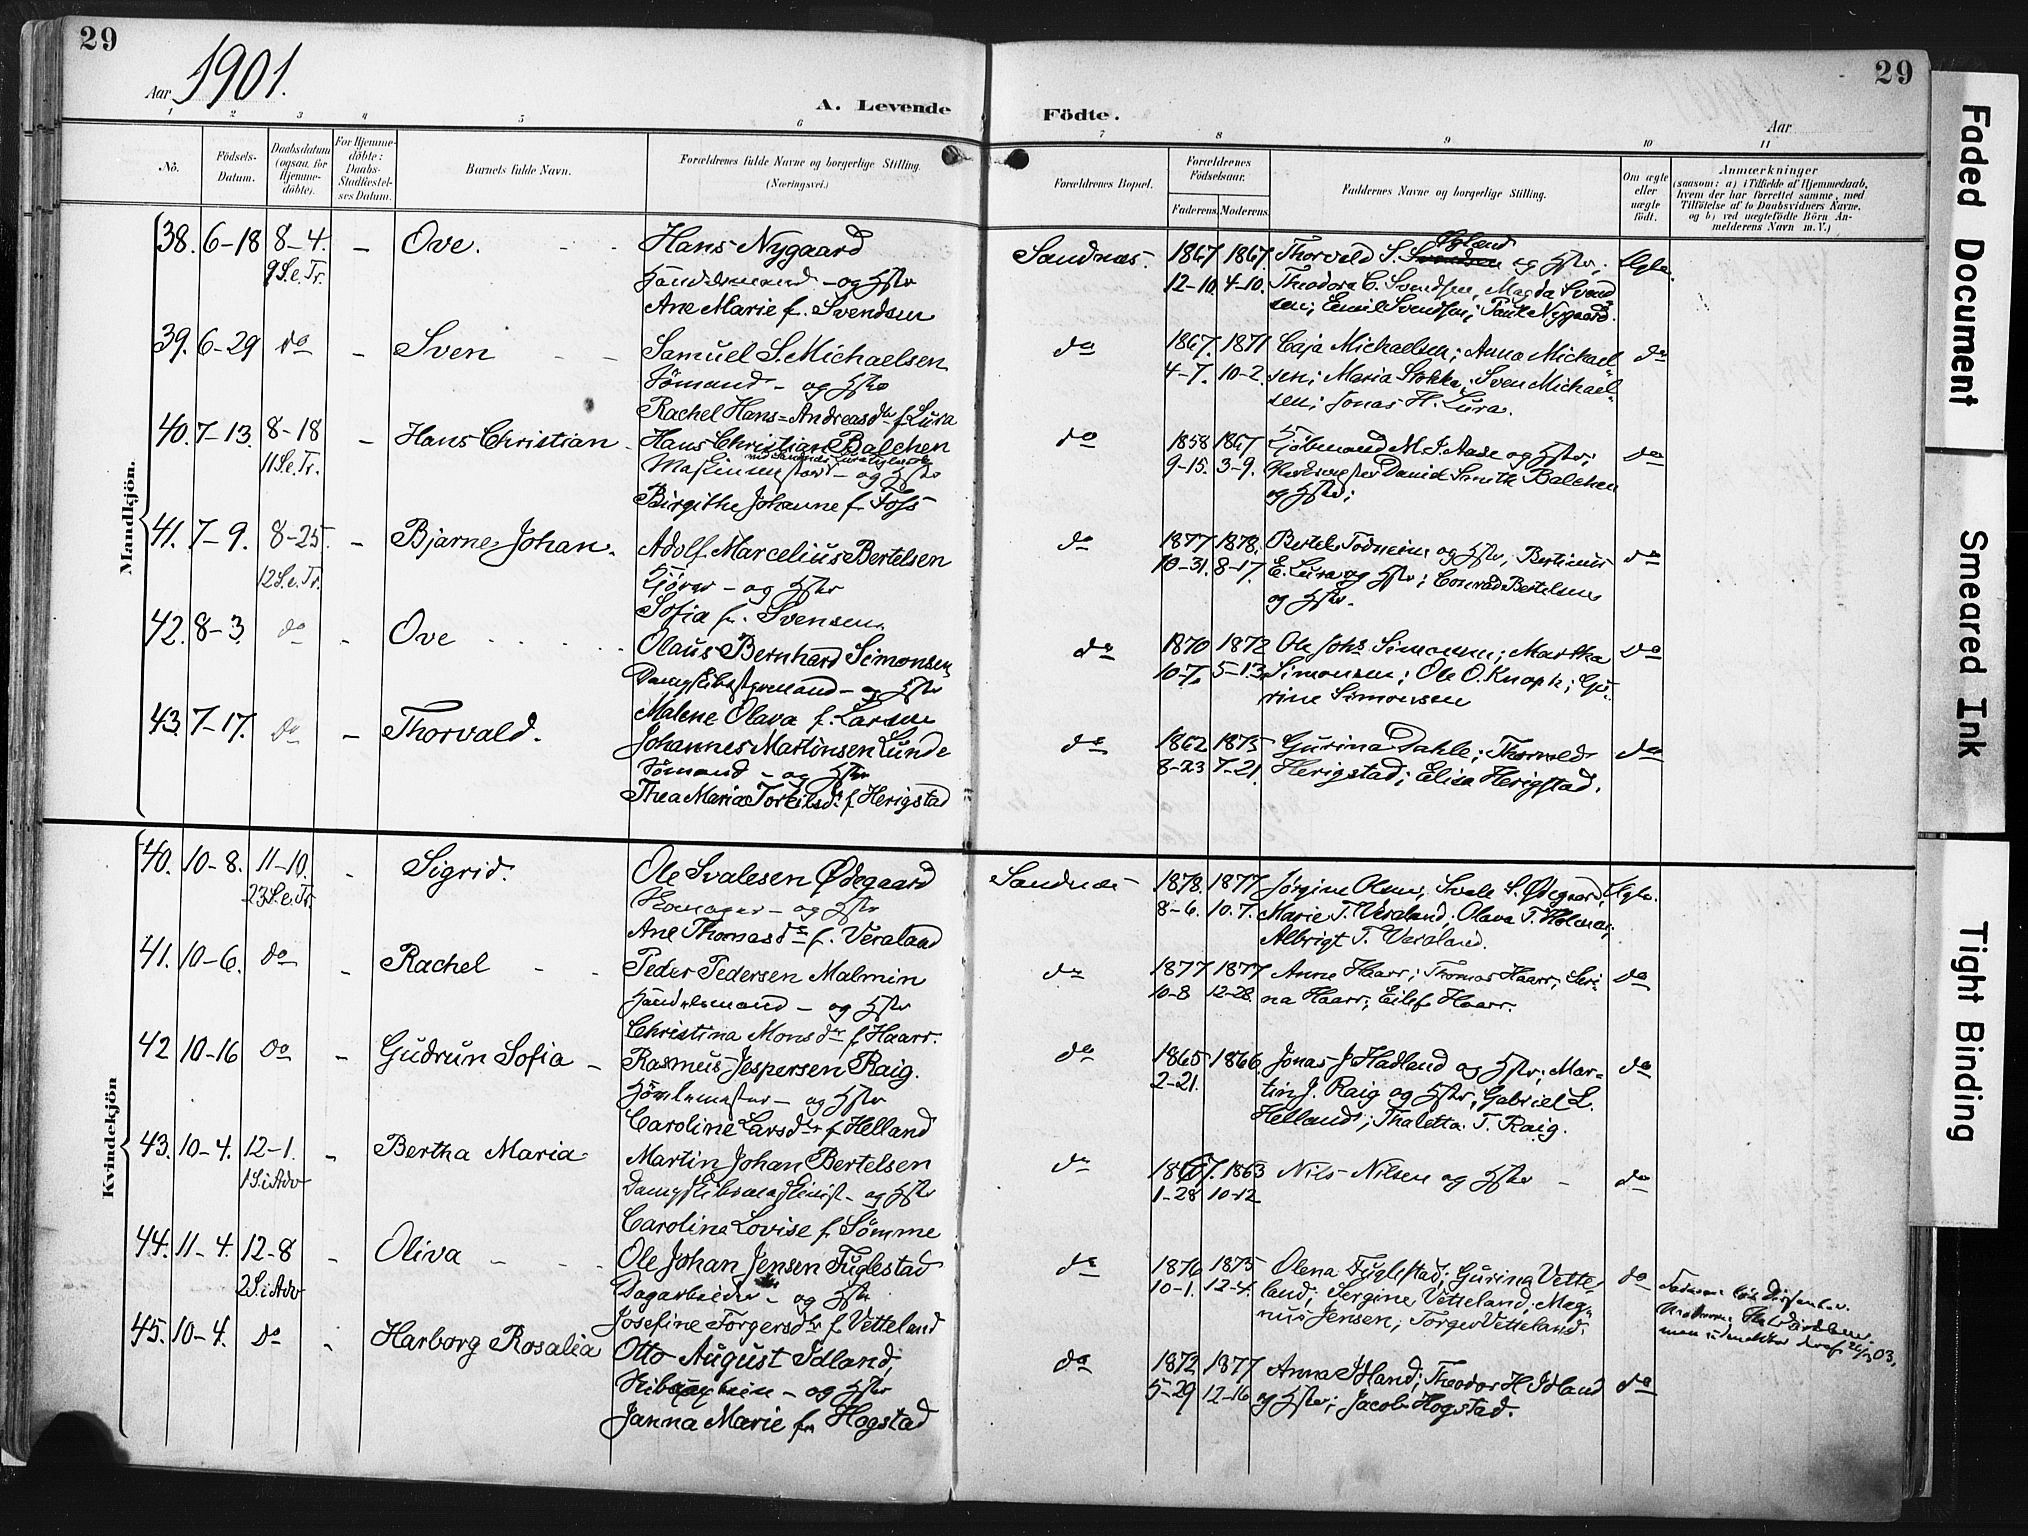 29
29
Aar 1901.
A. Levende Födte.
Aar
1 2 3 4 5 6 7 8 9 10 11
No.
Födsels-Datum.
Daabsdatum (ogsaa for Hjemmedöbte).
For Hjemmedöbte: Daabs-Stadfæstelses Datum.
Barnets fulde Navn.
Forældrenes fulde Navne og borgerlige Stilling.
(Næringsvei.)
Forældrenes Bopæl.
Forældrenes Födselsaar.
Faderens. Moderens.
Faddernes Navne og borgerlige Stilling.
Om ægte eller uægte født.
Anmærkninger
(saasom: a) i Tilfælde af Hjemmedaab, hvem der har forrettet samme, med Tilföielse af to Daabsvidners Navne, og b) ved uægtefödte Börn Anmelderens Navn m. V.)
Mandkjön.
38. 6-18 8-4. - Ove. - - Hans Nygaard Sandnæs. 1867 1867. Thorvald S. Svendsen og Hstr; Ægte.
9 S.e.Tr. Handelsmand - og Hstr 12-10. 4-10. Theodora C. Svendsen, Magda Svend
Ane Marie f. Svendsen sen; Emil Svendsen; Nygaard.
39. 6-29 do - Sven - - Samuel S. Michaelsen do 1867. 1871 Caja Michaelsen; Anna Michael do
Sömand - og Hstr 4-7. 10-2. sen; Maria Stokka; Sven Michael-
Rachel Hans=Andreasdr f Lura sen; Jonas H. Lura.
40. 7-13. 8-18 - Hans Christian - Hans Christian Balchen do 1858 1867 Kjöbmand M. J. Aase og Hstr; do
11 S.e.Tr. Maskinmester - og Hstr 9-15. 3-9. David Smith Balchen
Birgithe Johanne f. Foss og Hstr;
41. 7-9. 8-25. - Bjarne Johan. Adolf Marcelius Bertelsen do 1877 1878. Bertel Todneim og Hstr, Bertinius do
12 S.e.Tr. Kjører - og Hstr 10-31. 8-17. E. Lura og Hstr; Conrad Bertelsen
Sofia f. Svensen. og Hstr.
42. 8-3. do - Ove - - - Olaus Bernhard Simonsen do 1870 1872 Ole Johs. Simonsen; Martha do
og Hstr 10-7. 5-13 Simonsen; Ole O. Knoph; Gu-
Malene Olava f. Larsen rine Simonsen
43. 7-17. do - Thorvald. Johannes Martinsen Lunde do 1862 1875 Gurina Dahle; Thorvald do
Sömand - og Hstr 8-23 7-21. Herigstad; Elisa Herigstad.
Thea Maria Torkilsdr f Herigstad
Kvindekjön
40. 10-8. 11-10. - Sigrid. Ole Svalesen Ødegaard Sandnæs 1878. 1877 Jörgine Olsen, Svale S. Ødegaard, Ægte.
23 S.e.Tr. Skomager - og Hstr 8-6. 10.7. Marie T. Veraland; Olava T. Holmen;
Ane Thomasdr f. Veraland Albrigt T. Veraland.
41. 10-6. do - Rachel - - Peder Pedersen Malmin do 1877 1877 Anne Haarr; Thomas Haarr; Seri- do
Handelsmand - og Hstr 10-8 12-28 na Haarr; Eilef Haarr.
Christina Monsdr f. Haarr.
42 10-16 do - Gudrun Sofia - Rasmus Jespersen Raig. do 1865 1866 Jonas J Hadland og Hstr; Mar- do
og Hstr 2-21. tin J. Raig og Hstr; Gabriel L.
Caroline Larsdtr f Helland Helland; Thaletta T. Raig.
43. 10-4. 12-1. - Bertha Maria Martin Johan Bertelsen do 1867. 1863 Nils Nilsen og Hstr - do
1 S.i Adv Dampskibsmaskinist - og Hstr 1-28 10-12
Caroline Lovise f. Sömme
44. 11-4. 12-8 - Oliva - - - Ole Johan Jensen Fuglestad do 1876 1875 Olena Fuglestad; Gurina Vette- do
2 S.i Adv Dagarbeider - og Hstr 10-1. 12-4. land; Sergine Vetteland; Mag-
Josefine Torgersdtr f. Vetteland nus Jensen; Torger Vetteland.
45. 10-4. do - Harborg Rosalia Otto August Idland, do 1872 1877 Anna Idland; Theodor H. Idland do
- og Hstr 5-29 12-16 og Hstr; Jacob Hogstad.
Janna Marie f. Hogstad
03.
Faded Document
Smeared Ink
Tight Binding